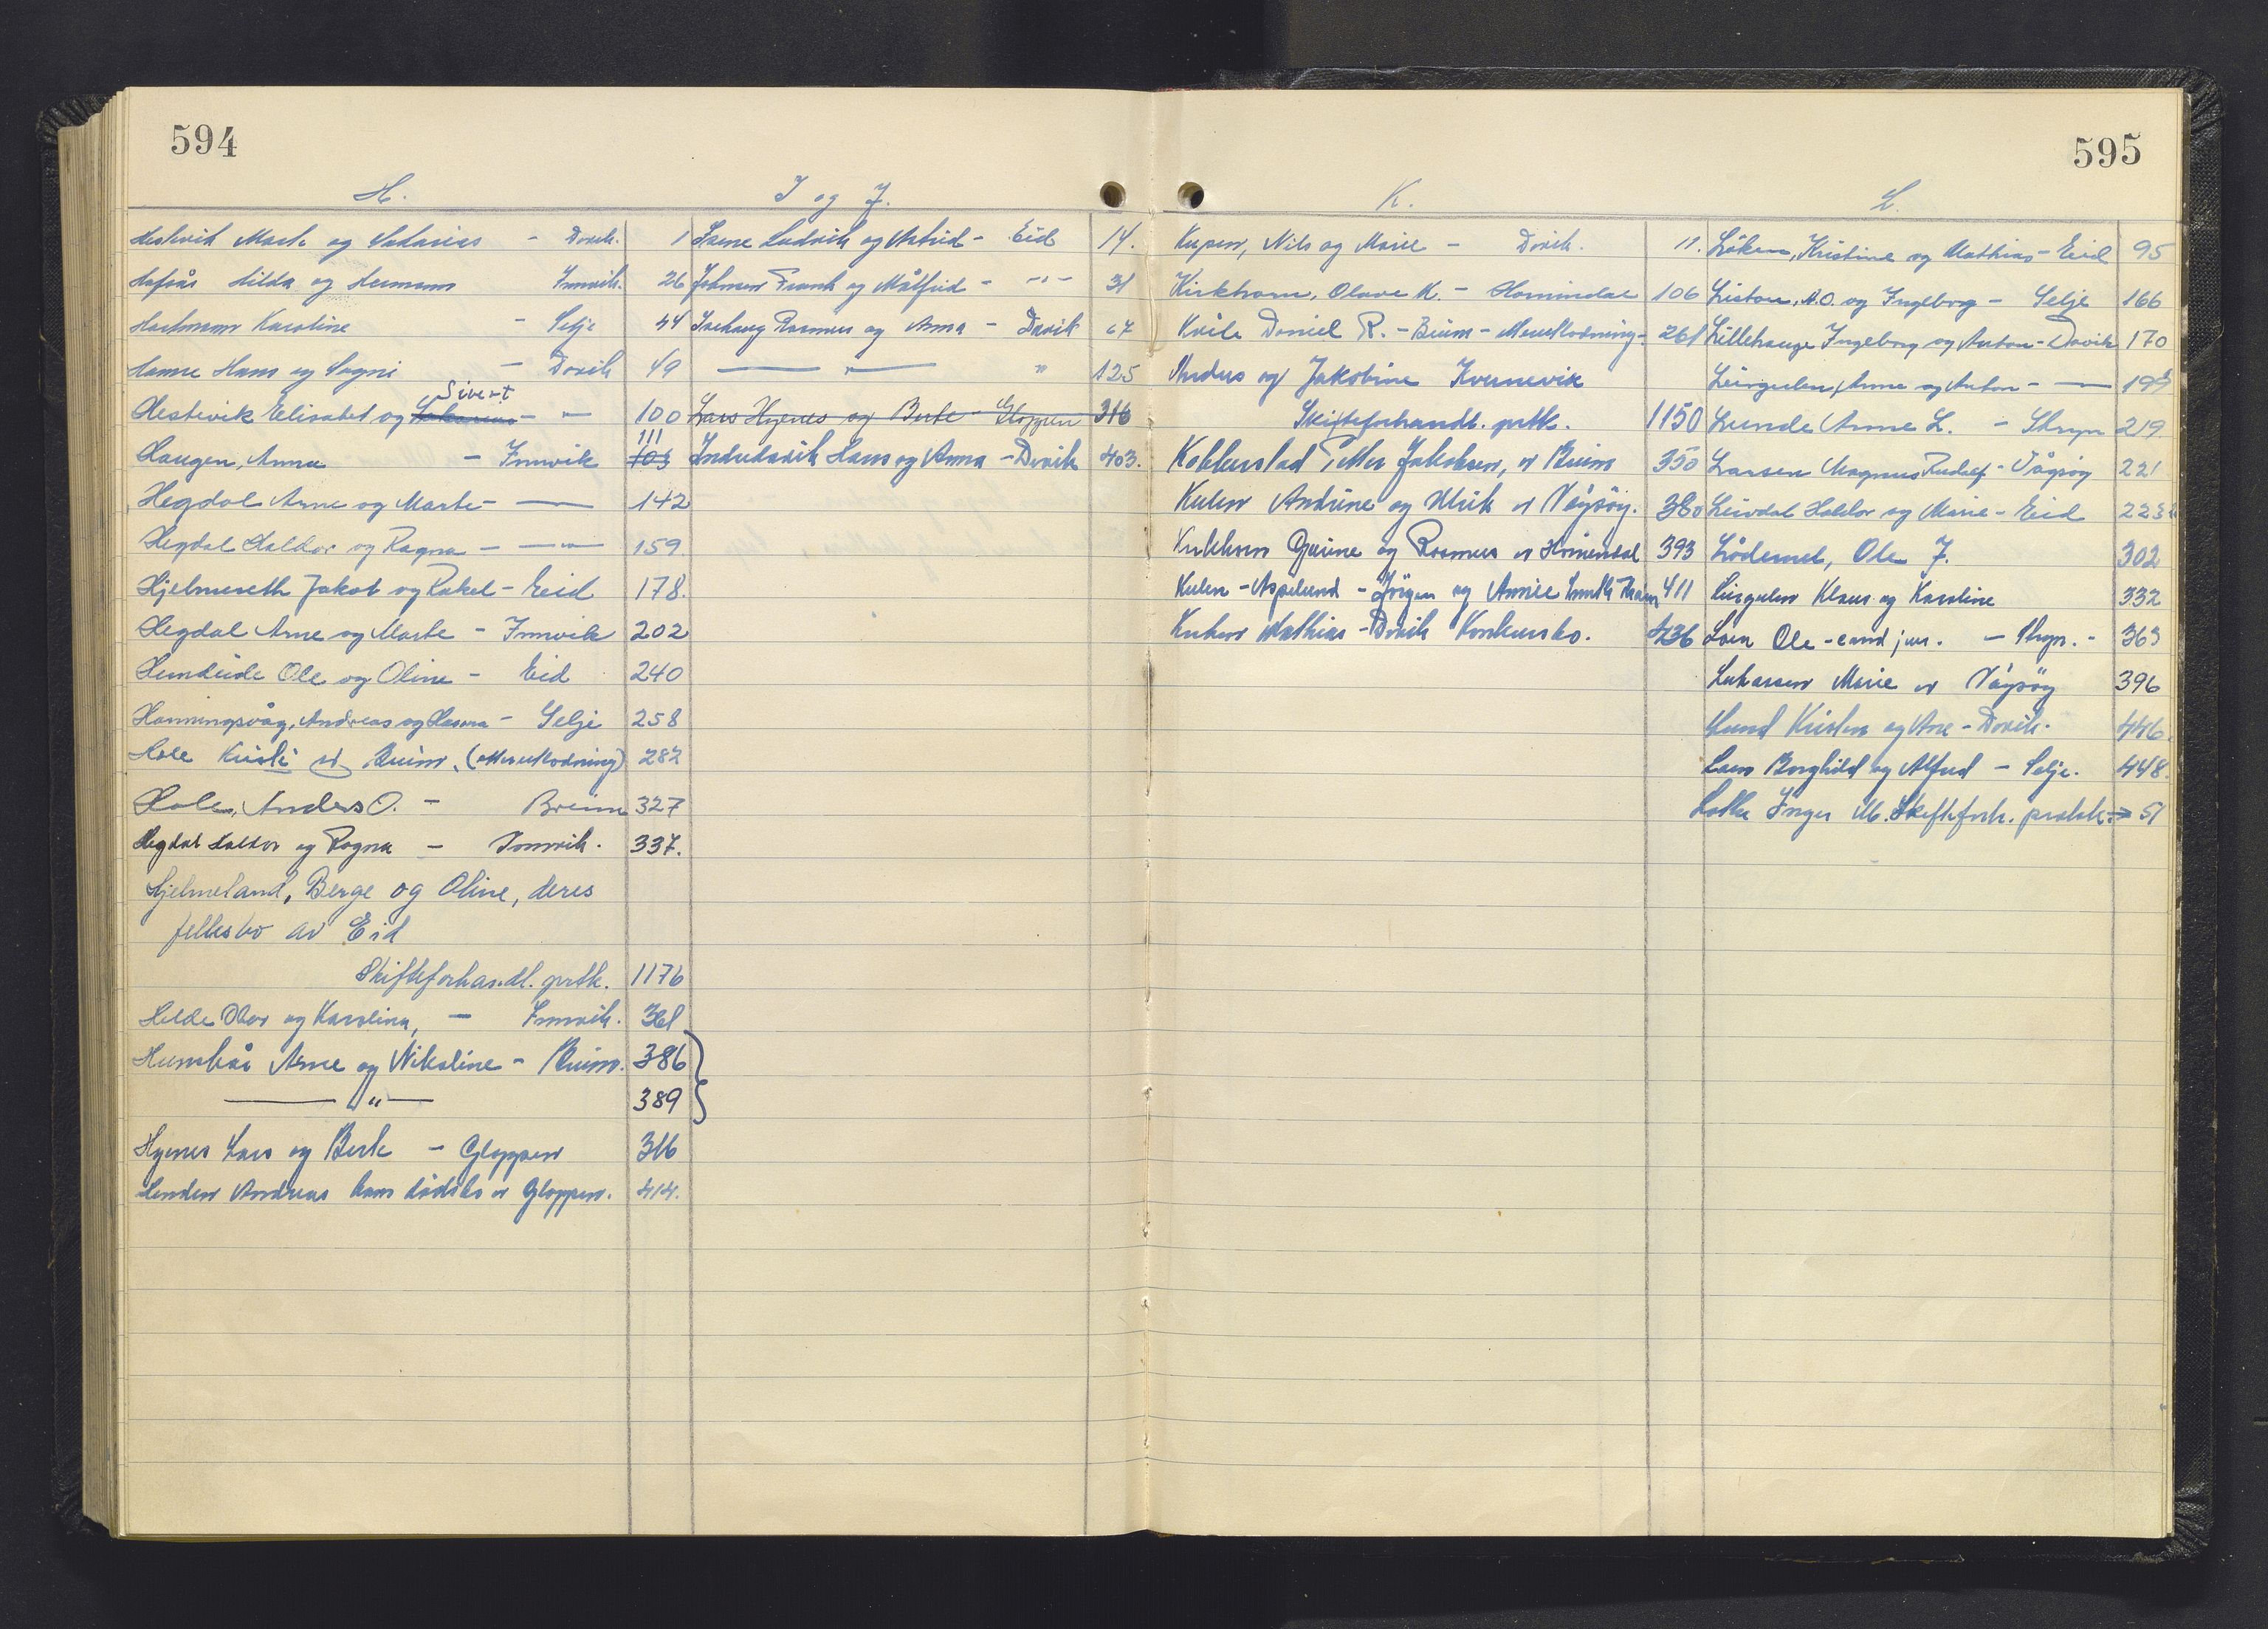 594
H.
Hestevik Marte og Sakarias - Davik. 1
Hafsås Hilda og Hermann Innvik. 26
Hartmann Karoline - Selje 44
Hamre Hans og Sogni - Davik 49
Sivert
Hestevik Elisabet og - " - 100
111
Haugen, Anna - Innvik 103
Hegdal Arne og Marte - — 142
Hegdal Haldor og Ragna - — " — 159
Hjelmeseth Jakob og Rakel - Eid 178.
Hegdal Arne og Marte - Innvik 202
Hundeide Ole og Oline - Eid 240
Honningsvåg, Andreas og Hasma - Selje 258
Hole Kirsti av Breim. (Merutlodning) 282
Hole, Anders O. - Breim 327
Hegdal Haldor og Ragna - Innvik. 337.
Hjelmeland, Berge og Oline, deres
fellesbo av Eid
Skifteforhandl. protk. 1176
Helde Olav og Karolina, - Innvik. 361
Arne og Nikoline - Breim. 386
— " — 389
Hyenes Lars og Berte - Gloppen 316
Henden Andreas hans dødsbo av Gloppen. 414.
I og J.
Isene Ludvik og Astrid - Eid 14.
Johnsen Frank og Målfrid - - " - 31
Isehaug Rasmus og Anna - Davik 67
— " — " 125
Lars Hyenes og Berte - Gloppen 316
Indrehavik Hans og Anna - Davik 403.
595
K.
Kupen, Nils og Marie - Davik. 11.
Kirkhorn, Olave K. - Hornindal 106
Kvile Daniel R. - Breim - Merutlodning - 261
Andres og Jakobine Kvernevik
Skifteforhandl. protk. 1150
Petter Jakobsen, av Breim 350
Kulen Andrine og Ulrik av Vågsøy. 380
Gurine og Rasmus av Hornindal 393
Kulen - Aspelund - Jørgen og 411
Mathias - Davik Konkursbo. 436
L.
Løken, Kristine og Mathias - Eid 95
Liston, A.O. og Ingeborg - Selje 166
Lillehauge Ingeborg og Anton - Davik 170
Leirgulen, Anna og Anton - — 199
Lunde Anne L. - Stryn 219
Larsen Magnus Rudolf - Vågsøy 221
Leivdal Haldor og Marie - Eid 223
Lødemel, Ole J. 302
Leirgulen Klaus og Karoline 332
Loen Ole - cand jur. - Stryn. - 363
Lukassen Marie av Vågsøy 396
Lund Kristen og Ane - Davik. 446.
Borghild og Alfred - Selje. 448.
Inger M. Skifteforh. protok. → 51